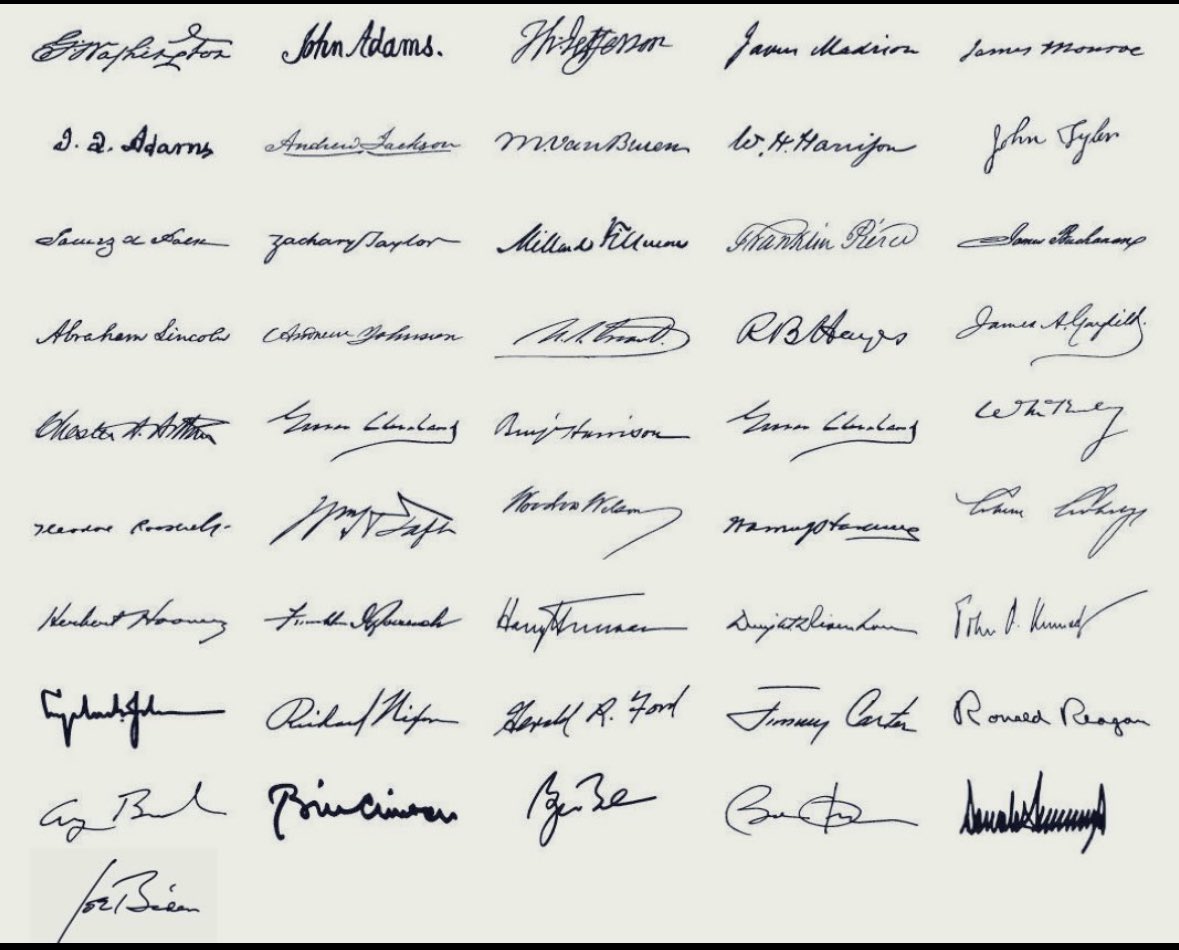 G:Washington John Adams. Th:Jefferson James Madison James Monroe
J. Q. Adams Andrew Jackson M. Van Buren W. H. Harrison John Tyler
James K Polk Zachary Taylor Millard Fillmore Franklin Pierce James Buchanan
Abraham Lincoln Andrew Johnson U. S. Grant. R B Hayes James A. Garfield.
Chester A. Arthur Grover Cleveland Benj Harrison Grover Cleveland Wm McKinley
Theodore Roosevelt. Wm H Taft Woodrow Wilson Warren G Harding Calvin Coolidge
Herbert Hoover Franklin D Roosevelt Harry Truman Dwight D Eisenhower John F. Kennedy
Lyndon B. Johnson Richard Nixon Gerald R. Ford Jimmy Carter Ronald Reagan
G Bush Bill Clinton G Bush B Obama Donald Trump
Joe Biden